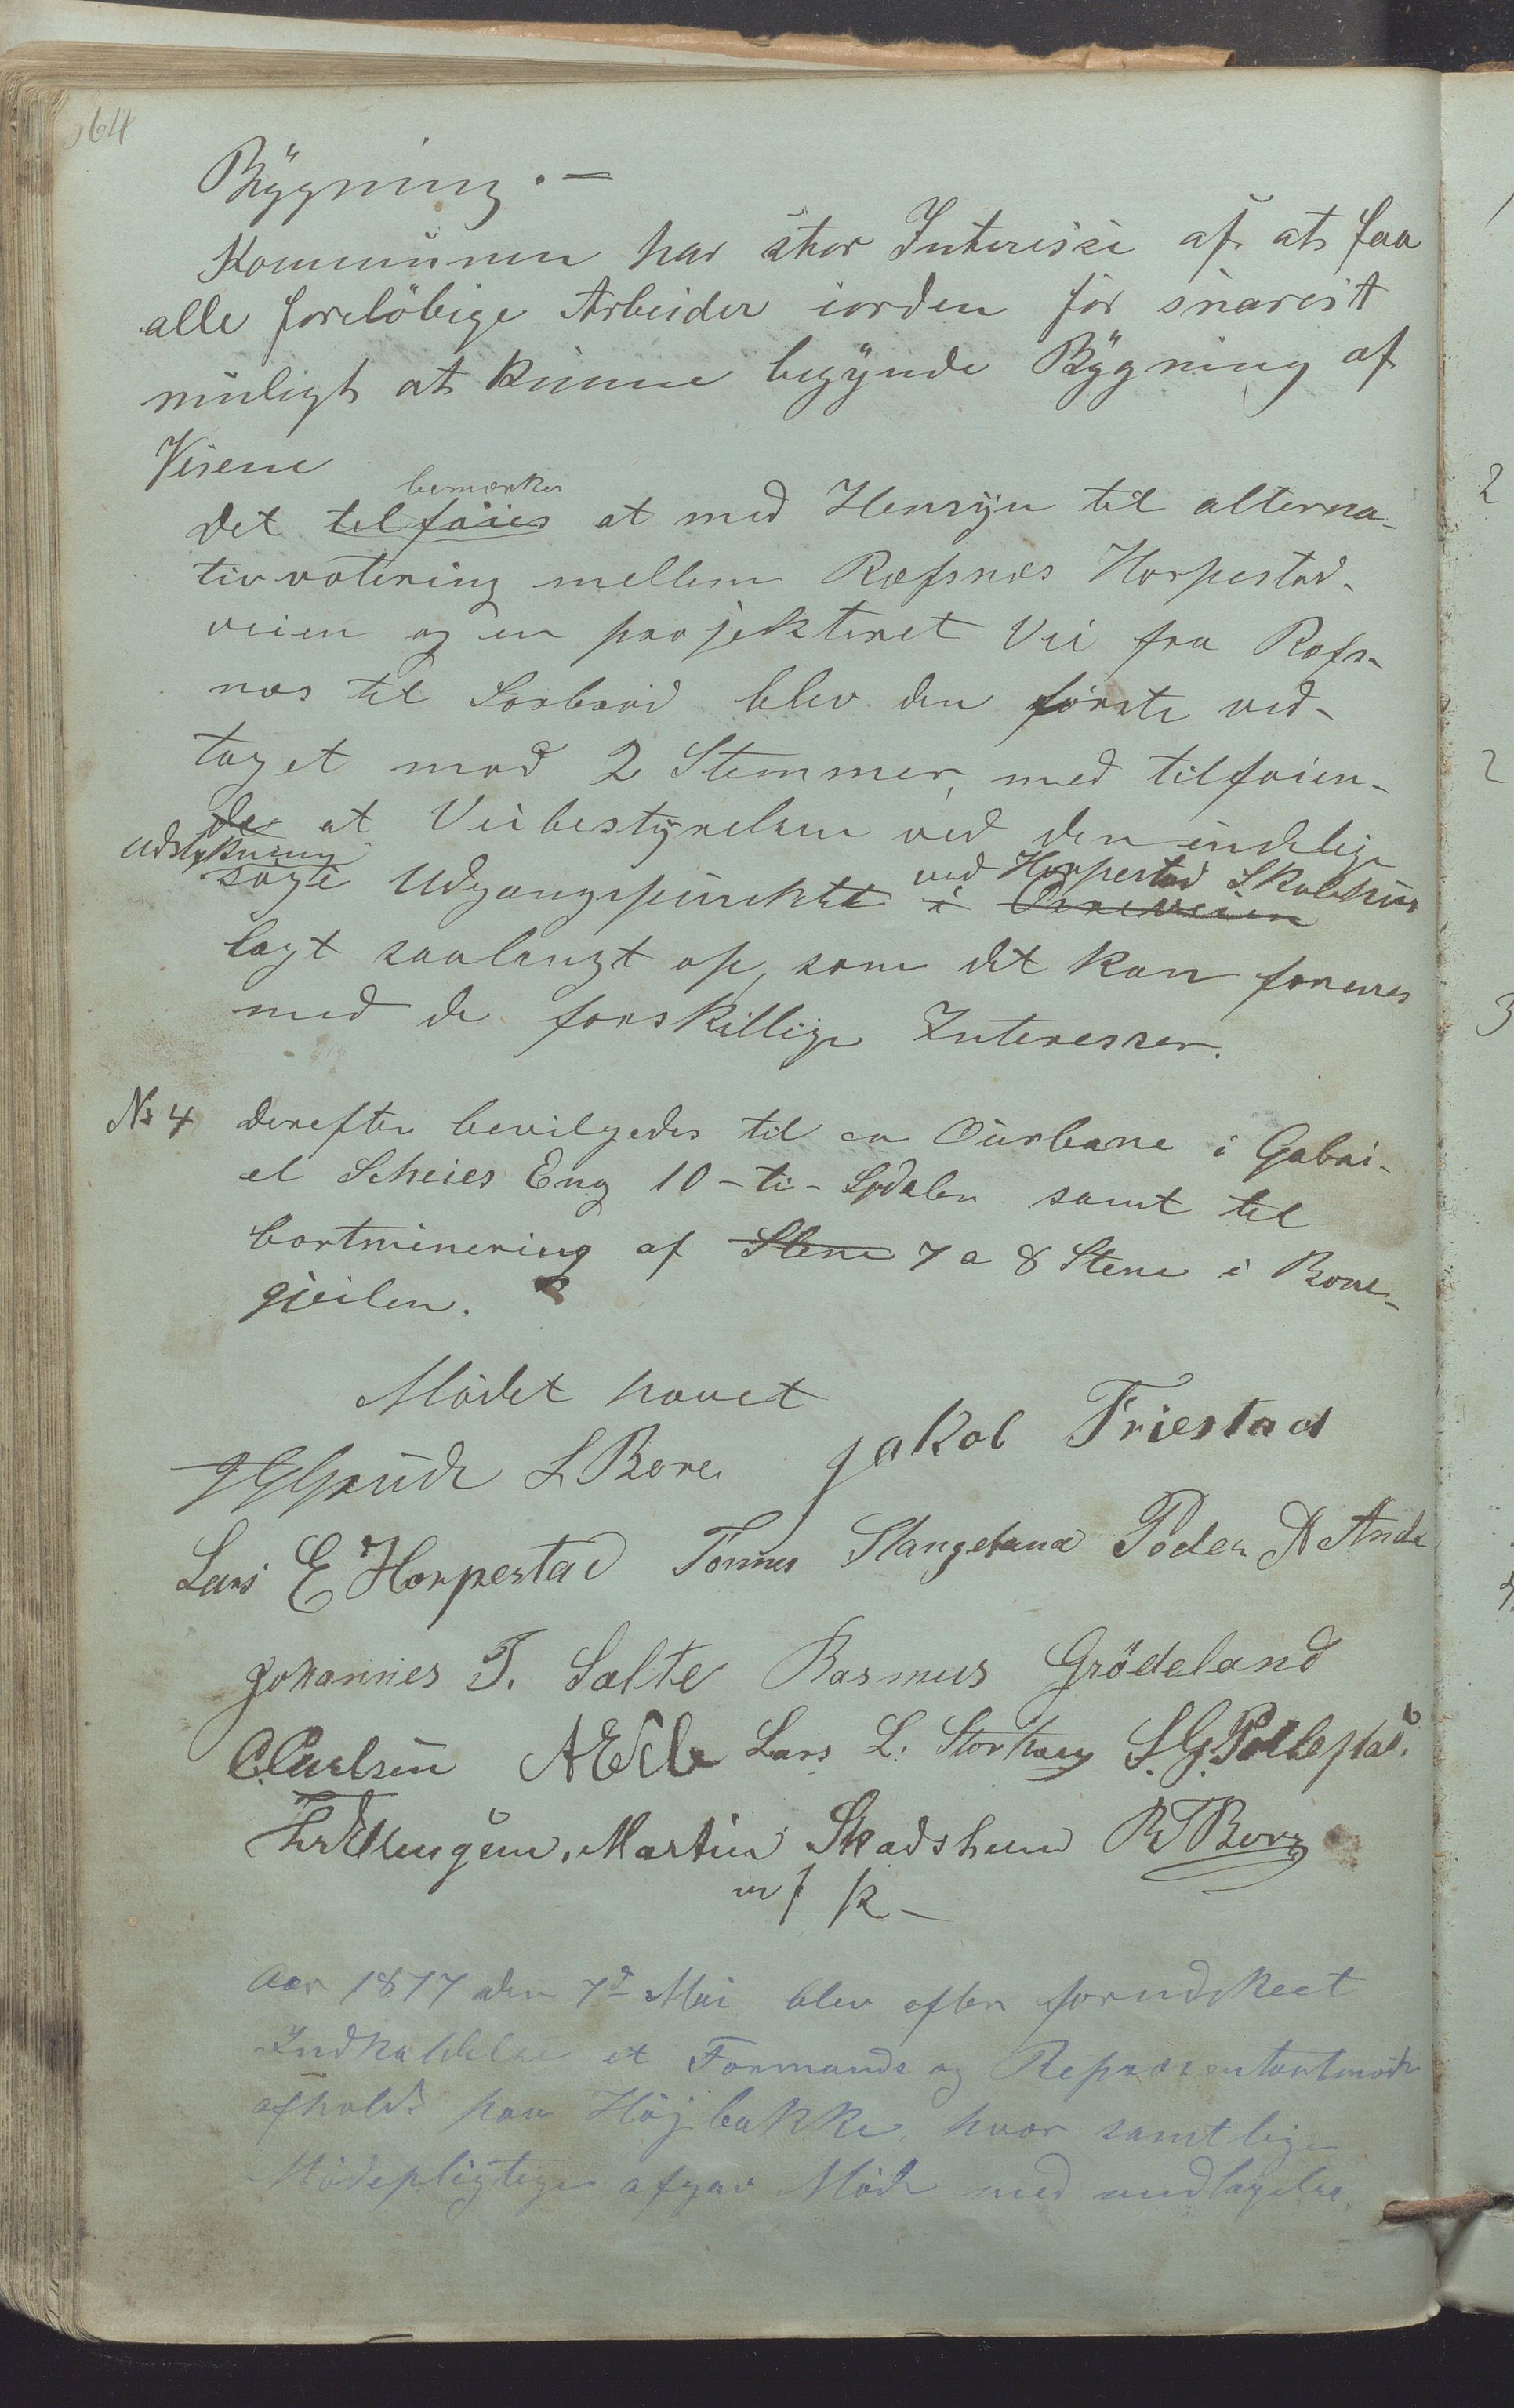 64
Bygning. —
Kommunen har stor Interesse af at faa
alle foreløbige Arbeider iorden for snarest
muligt at kunne begynde Bygning af
Veiene
bemærkes
Det tilføies at med Hensyn til alterna-
tiv votering mellem Ræfsnæs Horpestad-
veien og en projekteret Vei fra Ræfs-
næs til Sorbrød blev den første ved-
taget mod 2 Stemmer, med tilføien-
de at Veibestyrelsen ved den endelige
udstykning ved Horpestad Skolehus
søge Udgangspunktet i Orreveien
lagt saalangt op, som det kan forenes
med de forskellige Interesser.
No 4 Derefter bevilgedes til en Ourbane i Gabri-
el Scheies Eng 10 - ti - Spdaler samt til
bortminering af Stene 7 a 8 Stene i Bore-
gjeilen.
Mødet hævet
L Bore Jakob Friestad
Lars E Horpestad Tønnes Stangeland Peder A Anda
Johannes T. Salte Rasmus Grødeland
C. Carlsen Lars L. Storhaug S. G. Pollestad.
Martin Skadsheim R T Bore
m f P
Aar 1877 den 7d Mai blev efter forudskeet
Indkaldelse et Formands og Repræsentantmøde
afholdt paa Højbakke, hvor samtlige
Mødepligtige afgav Møde med undtagelse